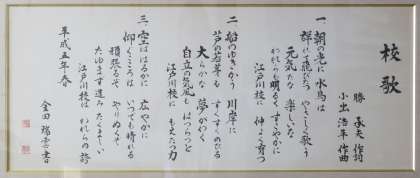 校歌
勝 承夫 作詞
小出 浩平 作曲
一、朝の光に 水鳥は
群れて飛び立つ やさしく歌う
元気だな 楽しいな
われらも明るく すこやかに
江戸川校に 仲よく育つ
二、船のゆきかう 川岸に
芦の若芽も すくすくのびる
大らかな 夢がわく
自立の気風も はつらつと
江戸川校に もえたつ力
三、空ははるかに 広やかに
仰ぐこころは いつでも晴れる
頑張るぞ やりぬくぞ
たゆまず進み たくましい
江戸川校は われらの誇
平成五年春
金田 瑞雲書